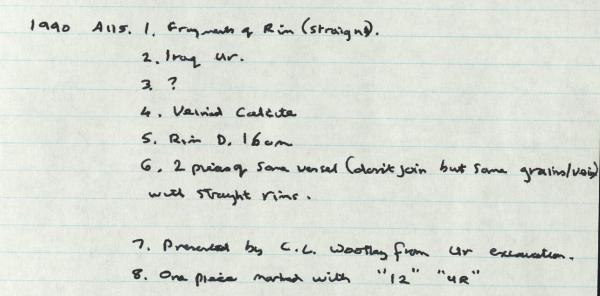 1990 A115. 1. Fragments of Rim (straight).
2. Iraq Ur.
3. ?
4. Veined Calcite
5. Rim D. 16cm
6. 2 pieces of same vessel (don't join but same grains/vein)
with straight rims.
7. Presented by C.L. Woolley from Ur excavation.
8. One piece marked with "12" "UR"